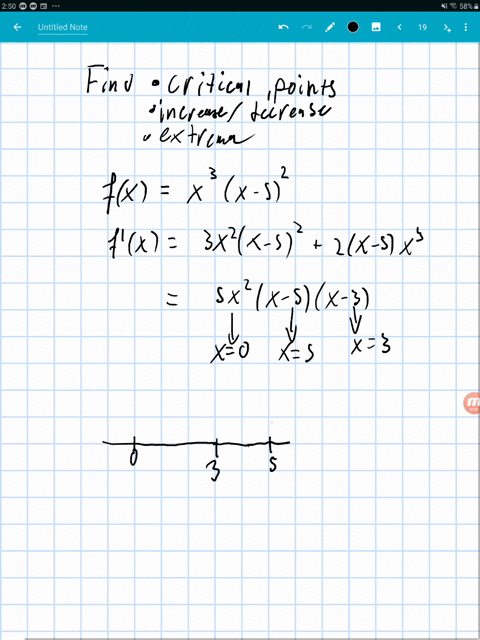 2:50 58%
Untitled Note 19
Find • critical points
• increase/decrease
• extrema
f(x) = x³(x-5)²
f'(x) = 3x²(x-5)² + 2(x-5)x³
= 5x²(x-5)(x-3)
x=0 x=5 x=3
0 3 5